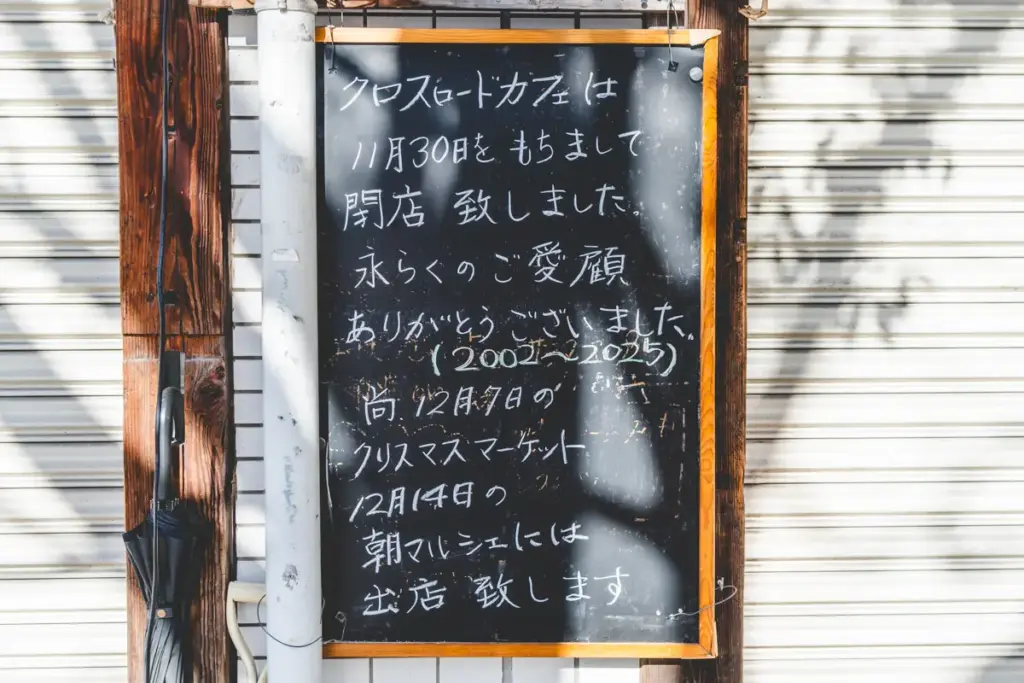 クロスロードカフェは
11月30日をもちまして
閉店致しました。
永らくのご愛顧
ありがとうございました。
(2002〜2025)
尚12月7日の
クリスマスマーケット
12月14日の
朝マルシェには
出店致します